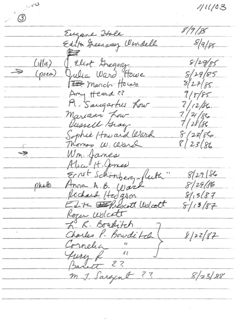 1/11/03
③
Eugene Hale 8/9/85
Edith Greenway Wendell 8/9/85
(illo) Eliot Gregory 8/29/85
→ (poem) Julia Ward Howe 8/29/85
March Howe 8/29/85
Amy Head ?? 9/5/85
A. Saugartus Low 7/21/86
Mariam Low 7/21/86
Russell Gray 7/21/86
Sophie Howard Ward 8/23/86
Thomas W. Ward 8/23/86
→ Wm. James
Alice H. James
Ernst Schonberg-Roth 8/29/86
photo Anna A. B. Ward 8/29/86
Richard Hodgson 8/13/87
Edith Prescott Wolcott 8/13/87
Roger Wolcott
L. R. Bowditch
Charles P. Bowditch 8/22/87
Cornelia "
Lucy R "
Barrett ??
M. J. Sargent ?? 8/23/88